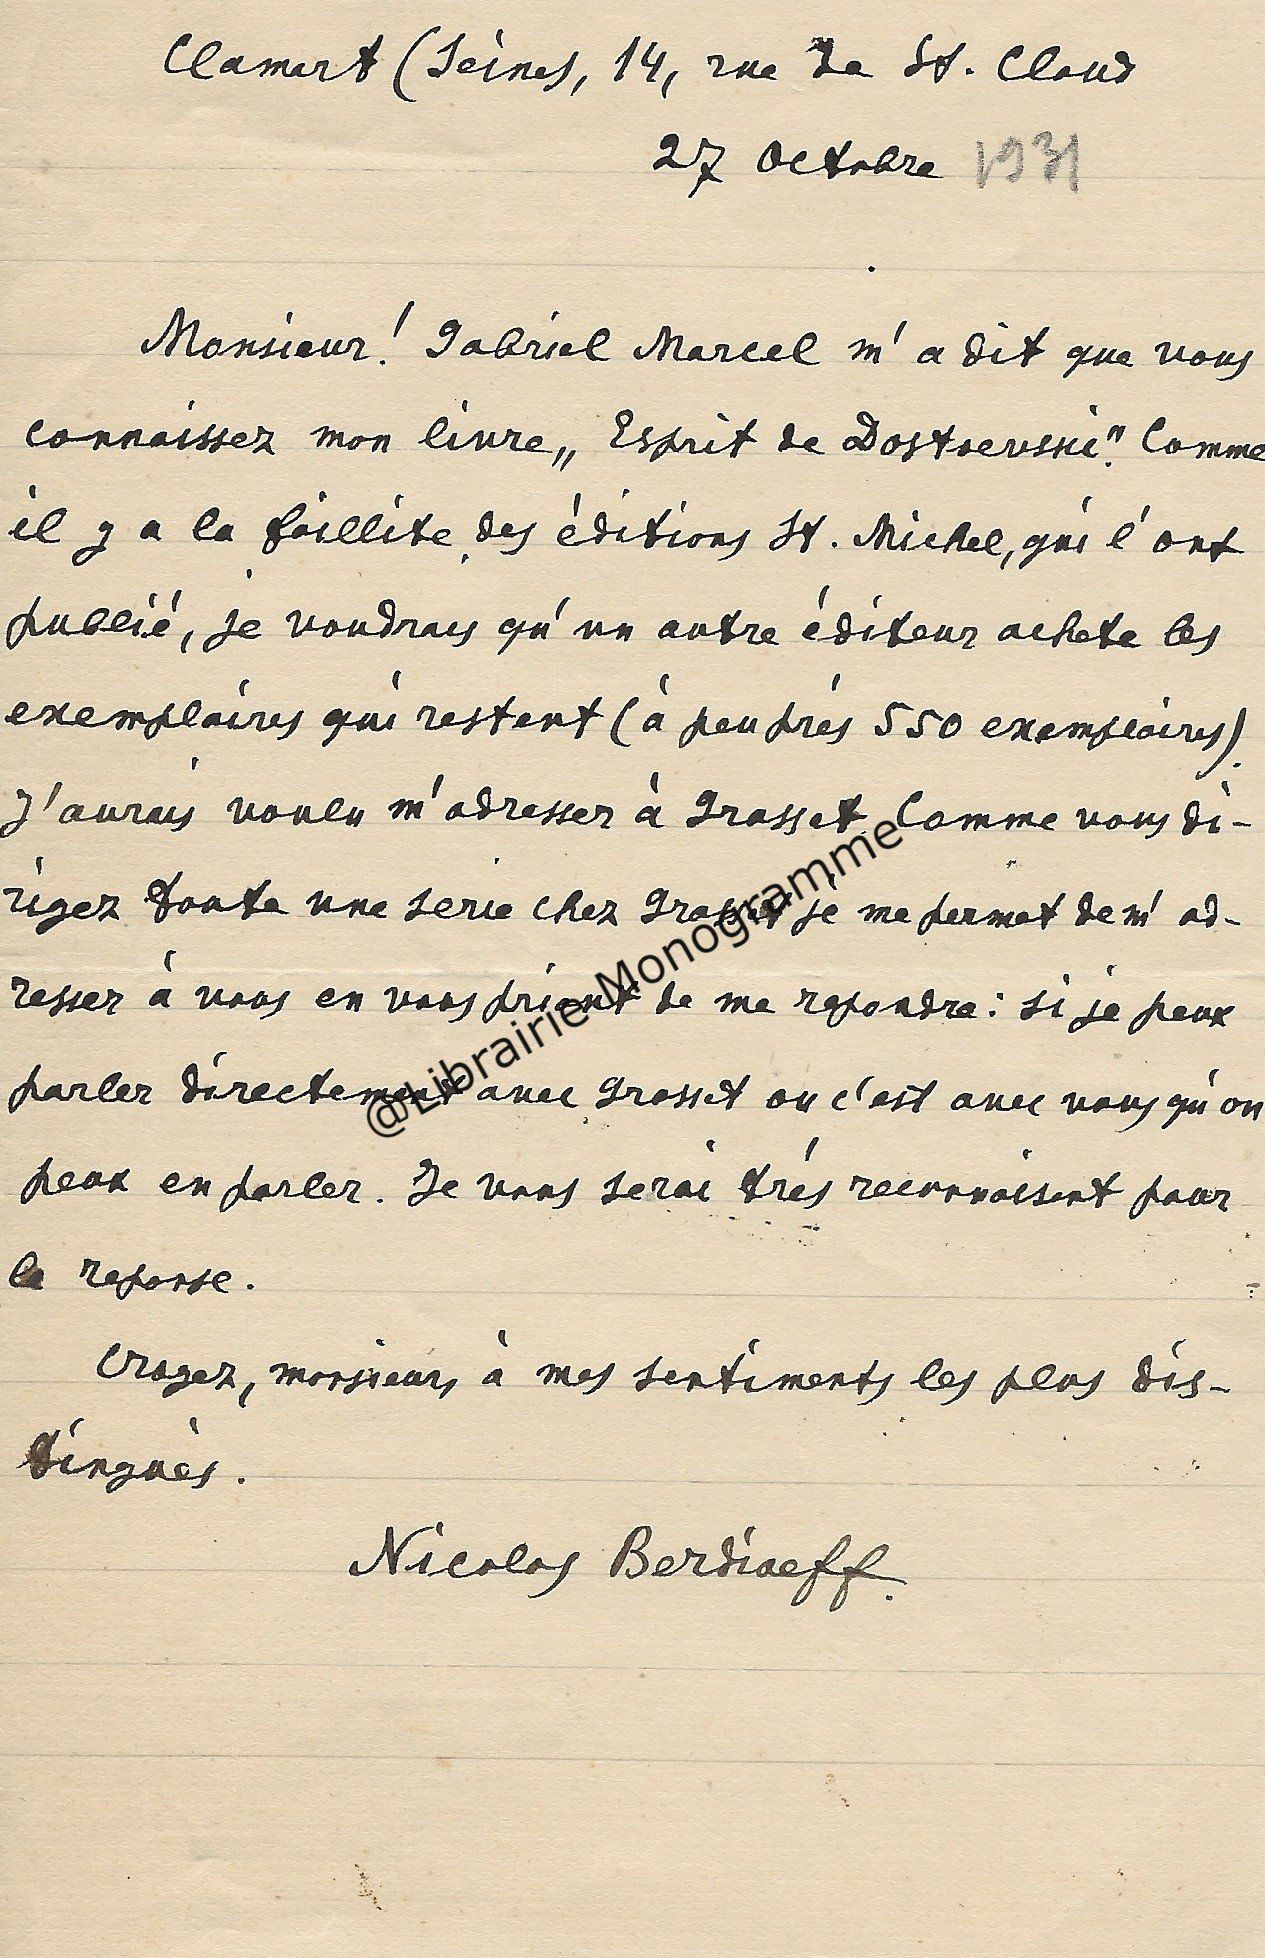 Clamart (Seine), 14, rue de St. Cloud
27 Octobre 1931
Monsieur! Gabriel Marcel m'a dit que vous
connaissez mon livre „Esprit de Dostoevski". Comme
il y a la faillite des éditions St. Michel, qui l'ont
publié, je voudrais qu'un autre éditeur achete les
exemplaires qui restent (à peu près 550 exemplaires).
J'aurais voulu m'adresser à Grasset. Comme vous di-
rigez toute une serie chez Grasset je me permet de m'ad-
resser à vous en vous priant de me repondre: si je peux
parler directement avec Grasset ou c'est avec vous qu'on
peux en parler. Je vous serai très reconnaissant pour
la reponse.
Croyez, monsieur, à mes sentiments les plus dis-
tingués.
Nicolas Berdiaeff.
@Librairie Monogramme